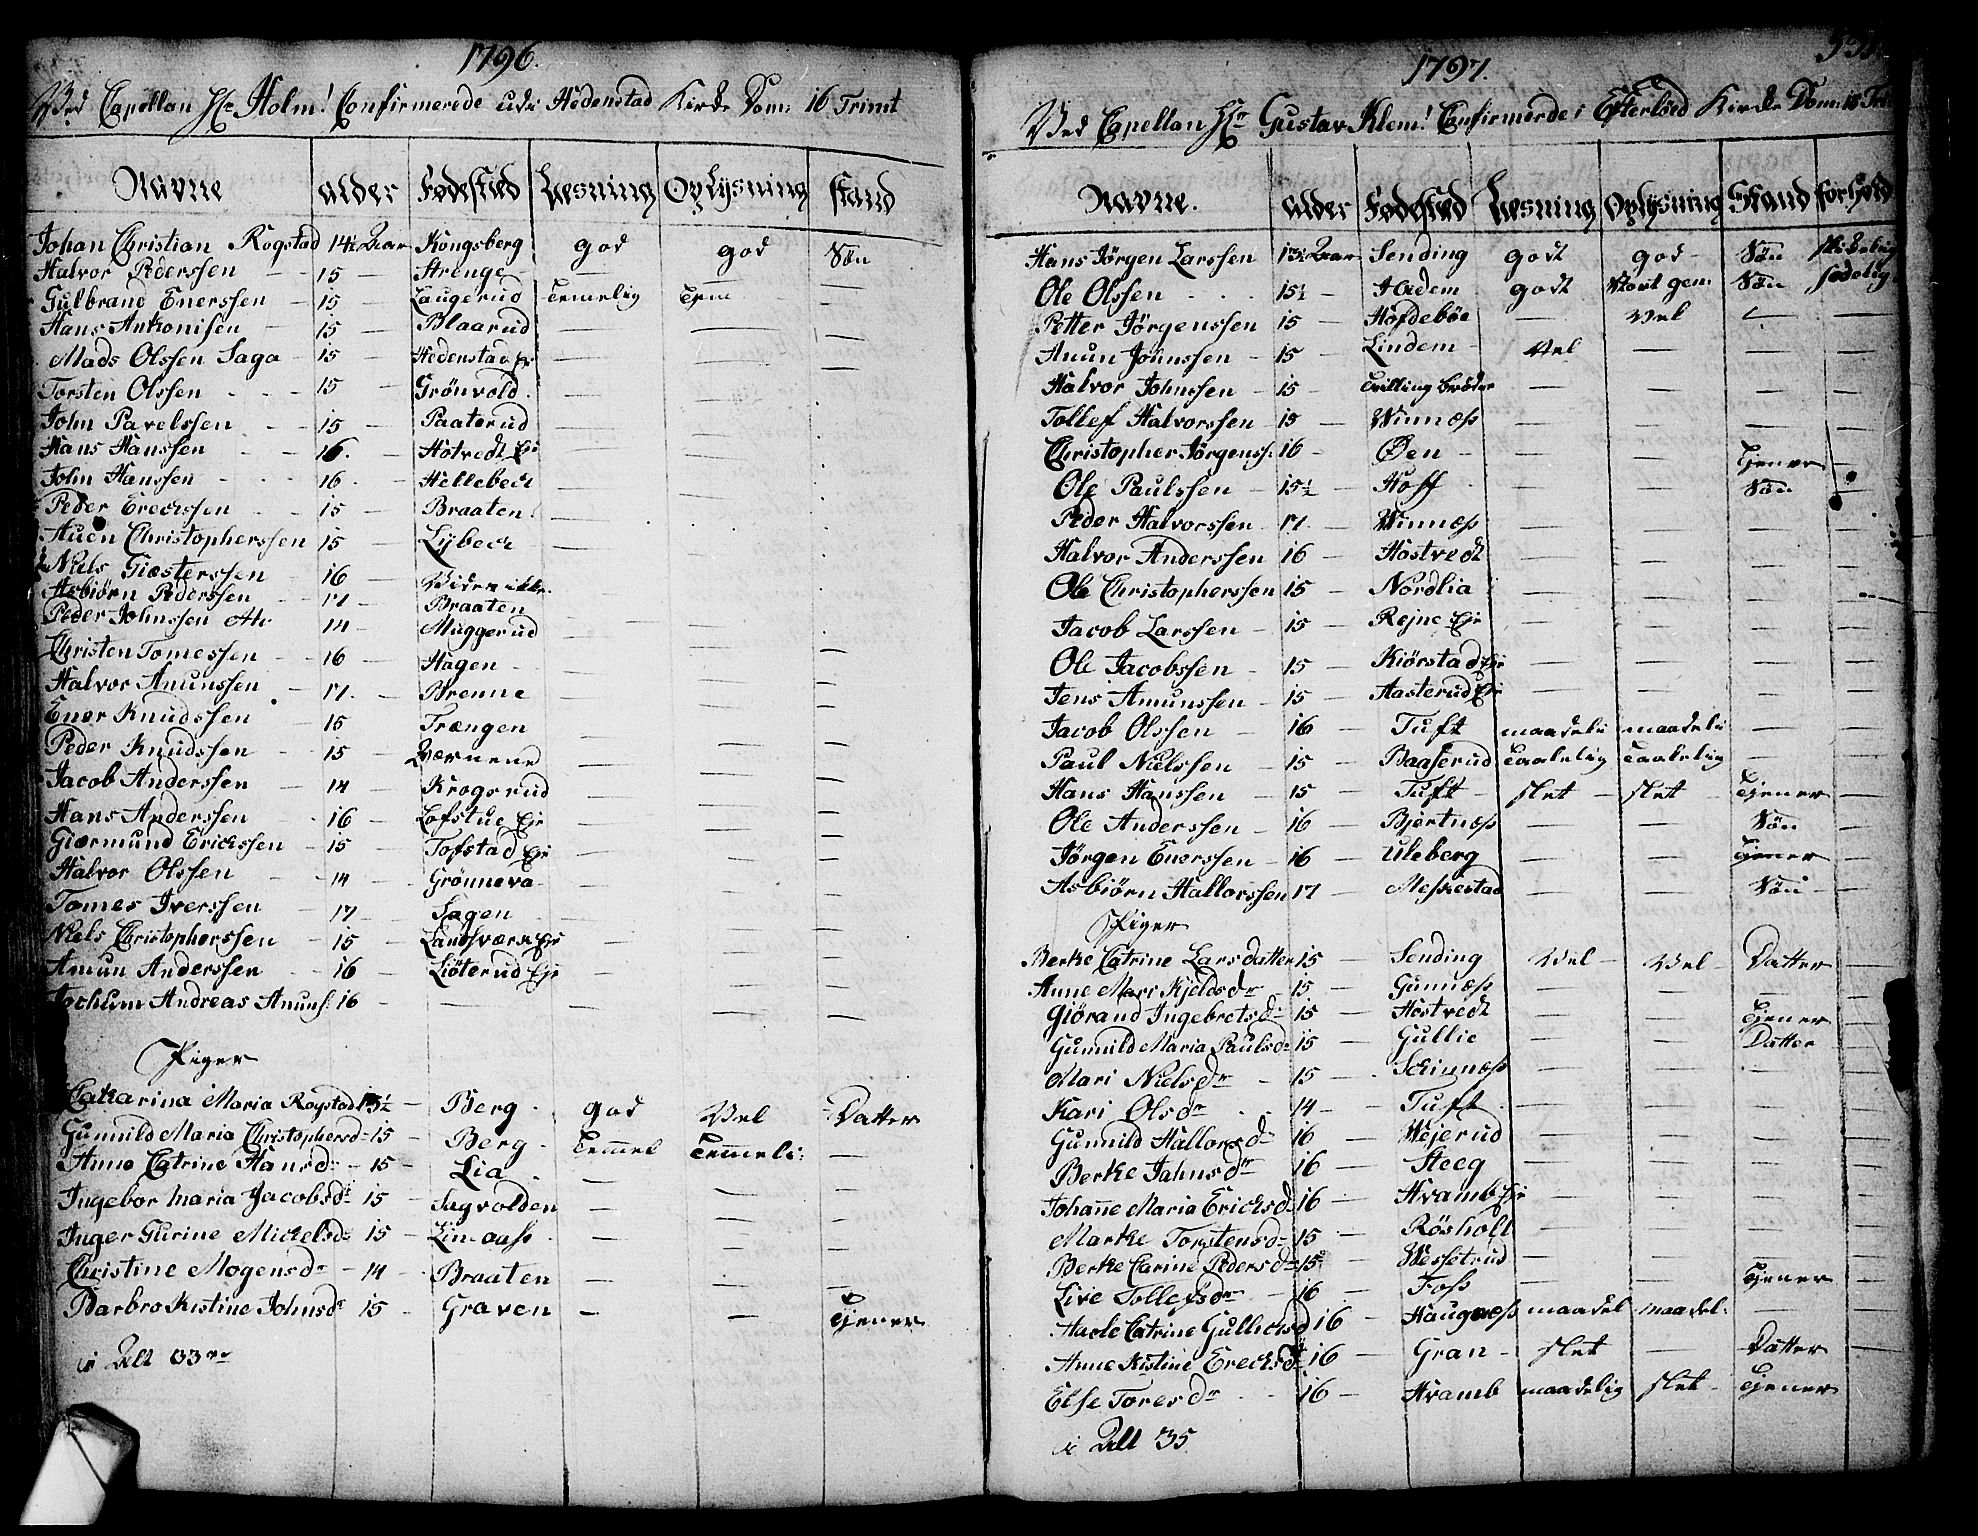 1796.
Ved Capellan Hr Holm! Confirmerede udi Hedenstad Kirke Dom: 16 Trinit
Navne alder Fødestæd Læsning Oplysning Stand
Johan Christian Rogstad 14½ Aar Kongsberg god god Søn
Halvor Pederssen 15 Strenge — — —
Gulbrand Enerssen 15 Laugerud Temelig Tem —
Hans Antonisen 15 Blaarud — — —
Mads Olssen Saga 15 Hedenstad Eje — — —
Torsten Olssen 15 Grönvold — — —
John Pavelssen 15 Paaterud — — —
Hans Hanssen 16. Hotvedt Eje — — —
John Hanssen 16 Hellebeck — — —
Peder Erickssen 15 Braaten — — —
Auen Christopherssen 15 Lybeck — — —
Niels Giæsterssen 16 Viden ikke — — —
Asbiørn Pederssen 17 Braaten — — —
Peder Johnssen 14 Muggerud — — —
Christen Tomessen 16 Hagen — — —
Halvor Amunssen 17. Brenne — — —
Ener Knudssen 15 Trængen — — —
Peder Knudssen 15 Værnene — — —
Jacob Anderssen 14 Krogsrud — — —
Hans Anderssen 16 Lofstue Eje — — —
Giærmund Erickssen 15 Tofstad Eje — — —
Halvor Olssen 14 Grönneva — — —
Tomes Iverssen 17 Sagen — — —
Niels Christopherssen 15 Landsværk Eje — — —
Amun Anderssen 16 Liöterud Eje — — —
Jochum Andreas Amuns: 16 — — — —
Piger
Catharina Maria Rogstad 13½ Berg god Vel Datter
Gunnild Maria Christophersd: 15 Berg Temmel Temmeli: —
Anne Catrine Hansd: 15 Lia — — —
Ingebor Maria Jacobsdr 15 Sagvolden — — —
Inger Gurine Mickelsd: 15 Lin-aass — — —
Christine Mogensdr 14 Braaten — — —
Barbro Kistine Johnsdr 15 Graven — — Tjener
i Alt 33
1797.
Ved Capellan Hr Gustav Klem! Confirmerde i Efterlöed Kirke Dom: 18 Tri
Navne. alder Fødestæd Læsning Oplysning Stand forhold
Hans Jörgen Larssen 13½ Aar Sending godt god Søn
Ole Olssen 15½ Hadem godt Søn sædelig
Petter Jörgenssen 15 Höfdeböe — Vel — —
Amun Johnssen 15 Lindem Vel — — —
Halvor Johnssen 15 Tvilling bröder — — — —
Tollef Halvorssen 15 Winnæss — — — —
Christopher Jörgenss: 16 Øen — — Tjener —
Ole Paulssen 15½ Hoff — — Søn —
Peder Halvorssen 17. Winnæss — — — —
Halvor Anderssen 16 Hostvedt — — — —
Ole Christopherssen 15 Nordlia — — — —
Jacob Larssen 15 Rejne Eje — — — —
Ole Jacobssen 15 Kiörstad Eje — — — —
Jens Amunssen 15 Aasterud Eje — — — —
Jacob Olssen 16 Tuft maadeli maadeli — —
Paul Nielssen 15 Baaserud Taalelig Taalelig — —
Hans Hanssen 15 Tuft slet slet Tjener —
Ole Anderssen 16 Bjertnæss — — Søn —
Jörgen Enerssen 16 Uleberg — — Tjener —
Asbiörn Hallorssen 17 Meskestad — — Søn —
Piger
Berte Catrine Lars Datter 15 Sending Vel Vel Datter —
Anne Mari Kjeldsdr 15 Gunnæss — — — —
Giörand Ingebretsd: 15 Hostvedt — — Tjener —
Gunnild Maria Paulsd: 15 Gullie — — Datter —
Mari Nielsdr 15 Skinnæss — — — —
Kari Olsdr 14 Tuft — — — —
Gunnild Hallorsdr 16 Wejerud — — — —
Berte Jahnsdr 16 Steeg — — — —
Johanne Maria Ericksd: 16 Hvamb Eje — — — —
Marte Torstensd: 15 Rösholt — — — —
Berte Carine Pedersd: 15 Wessetrud — — — —
Live Tollefsdr 16 Foss — — Tjener —
Aaste Catrine Gullicksd 16 Haugnæss maadel maadel: — —
Anne Kistine Ericksd: 16 Gran slet — Datter —
Else Toresdr 16 Hvamb maadelig slet Tjener —
i Alt 35